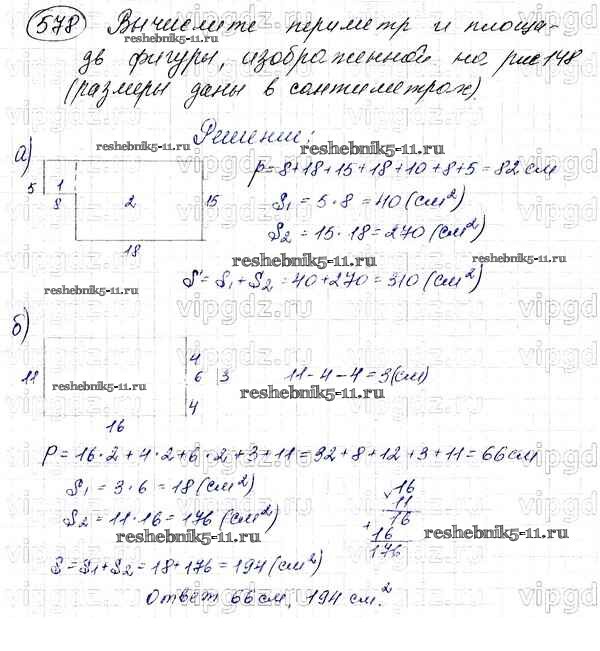 578 Вычислите периметр и площа-
дь фигуры, изображенной на рис 148
(размеры даны в сантиметрах).
reshebnik5-11.ru
Решение:
reshebnik5-11.ru
reshebnik5-11.ru
а)
5 1
8 2 15
18
P = 8+18+15+18+10+8+5=82 см
S₁ = 5·8=40 (см²)
S₂ = 15·18=270 (см²)
reshebnik5-11.ru
S = S₁+S₂ = 40+270=310 (см²)
reshebnik5-11.ru
б)
4
11 6 3
4
16
11-4-4=3(см)
reshebnik5-11.ru
reshebnik5-11.ru
P = 16·2+4·2+6·2+3+11=32+8+12+3+11=66см
S₁ = 3·6=18 (см²)
S₂ = 11·16=176 (см²)
16
11
16
+
16
176
reshebnik5-11.ru
reshebnik5-11.ru
S = S₁+S₂ = 18+176=194 (см²)
Ответ 66см, 194 см.²
vipgdz.ru